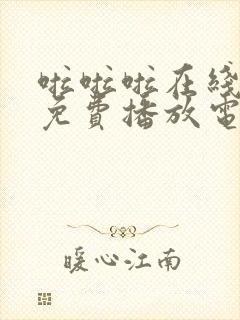 啦啦啦在线
免費播放電
暖心江南